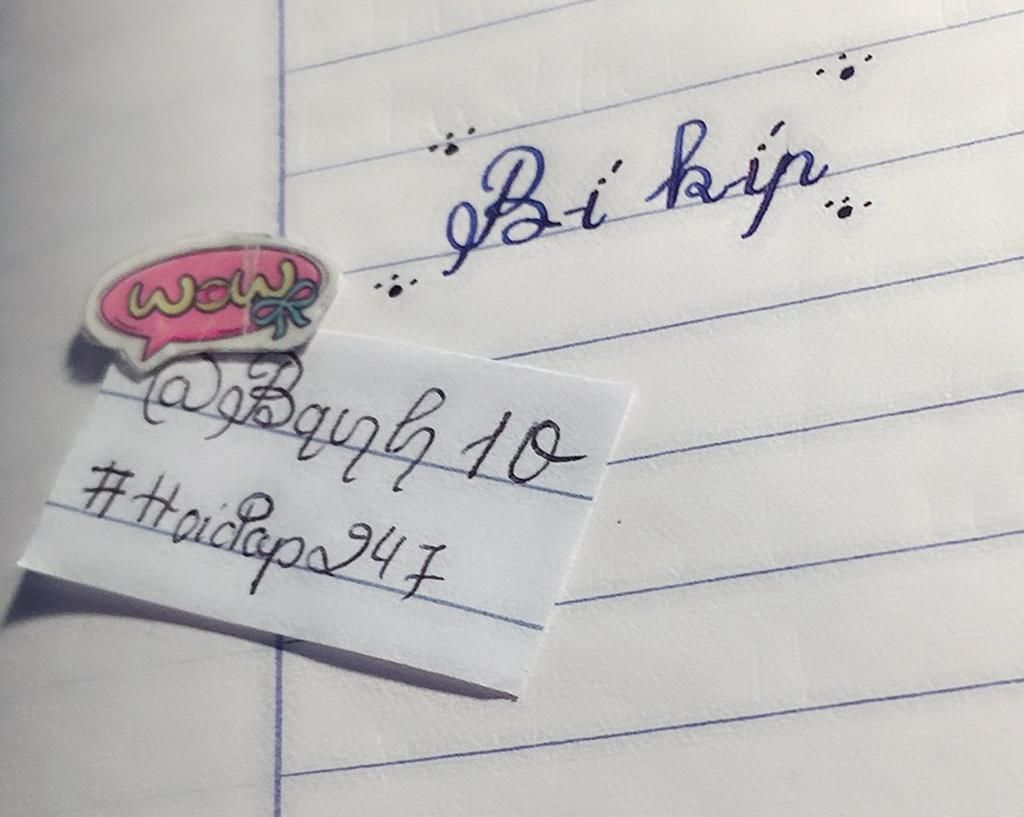 Bí kíp
wow
@Bqyh 10
#Hoidap247